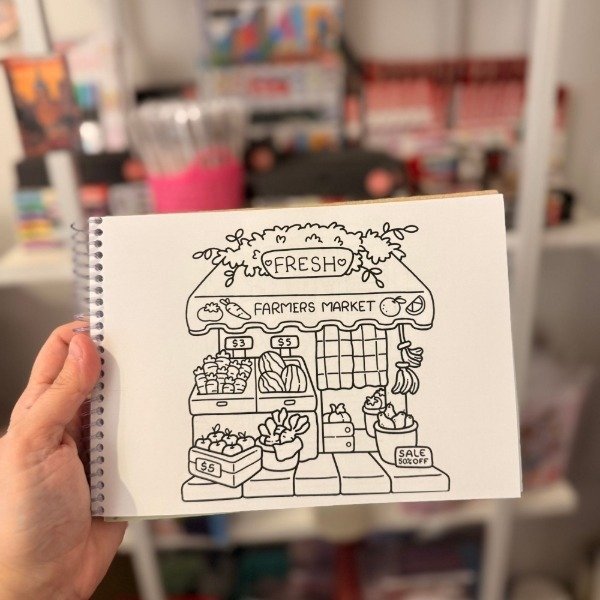 FRESH
FARMERS MARKET
$3
$5
$5
SALE
50% OFF